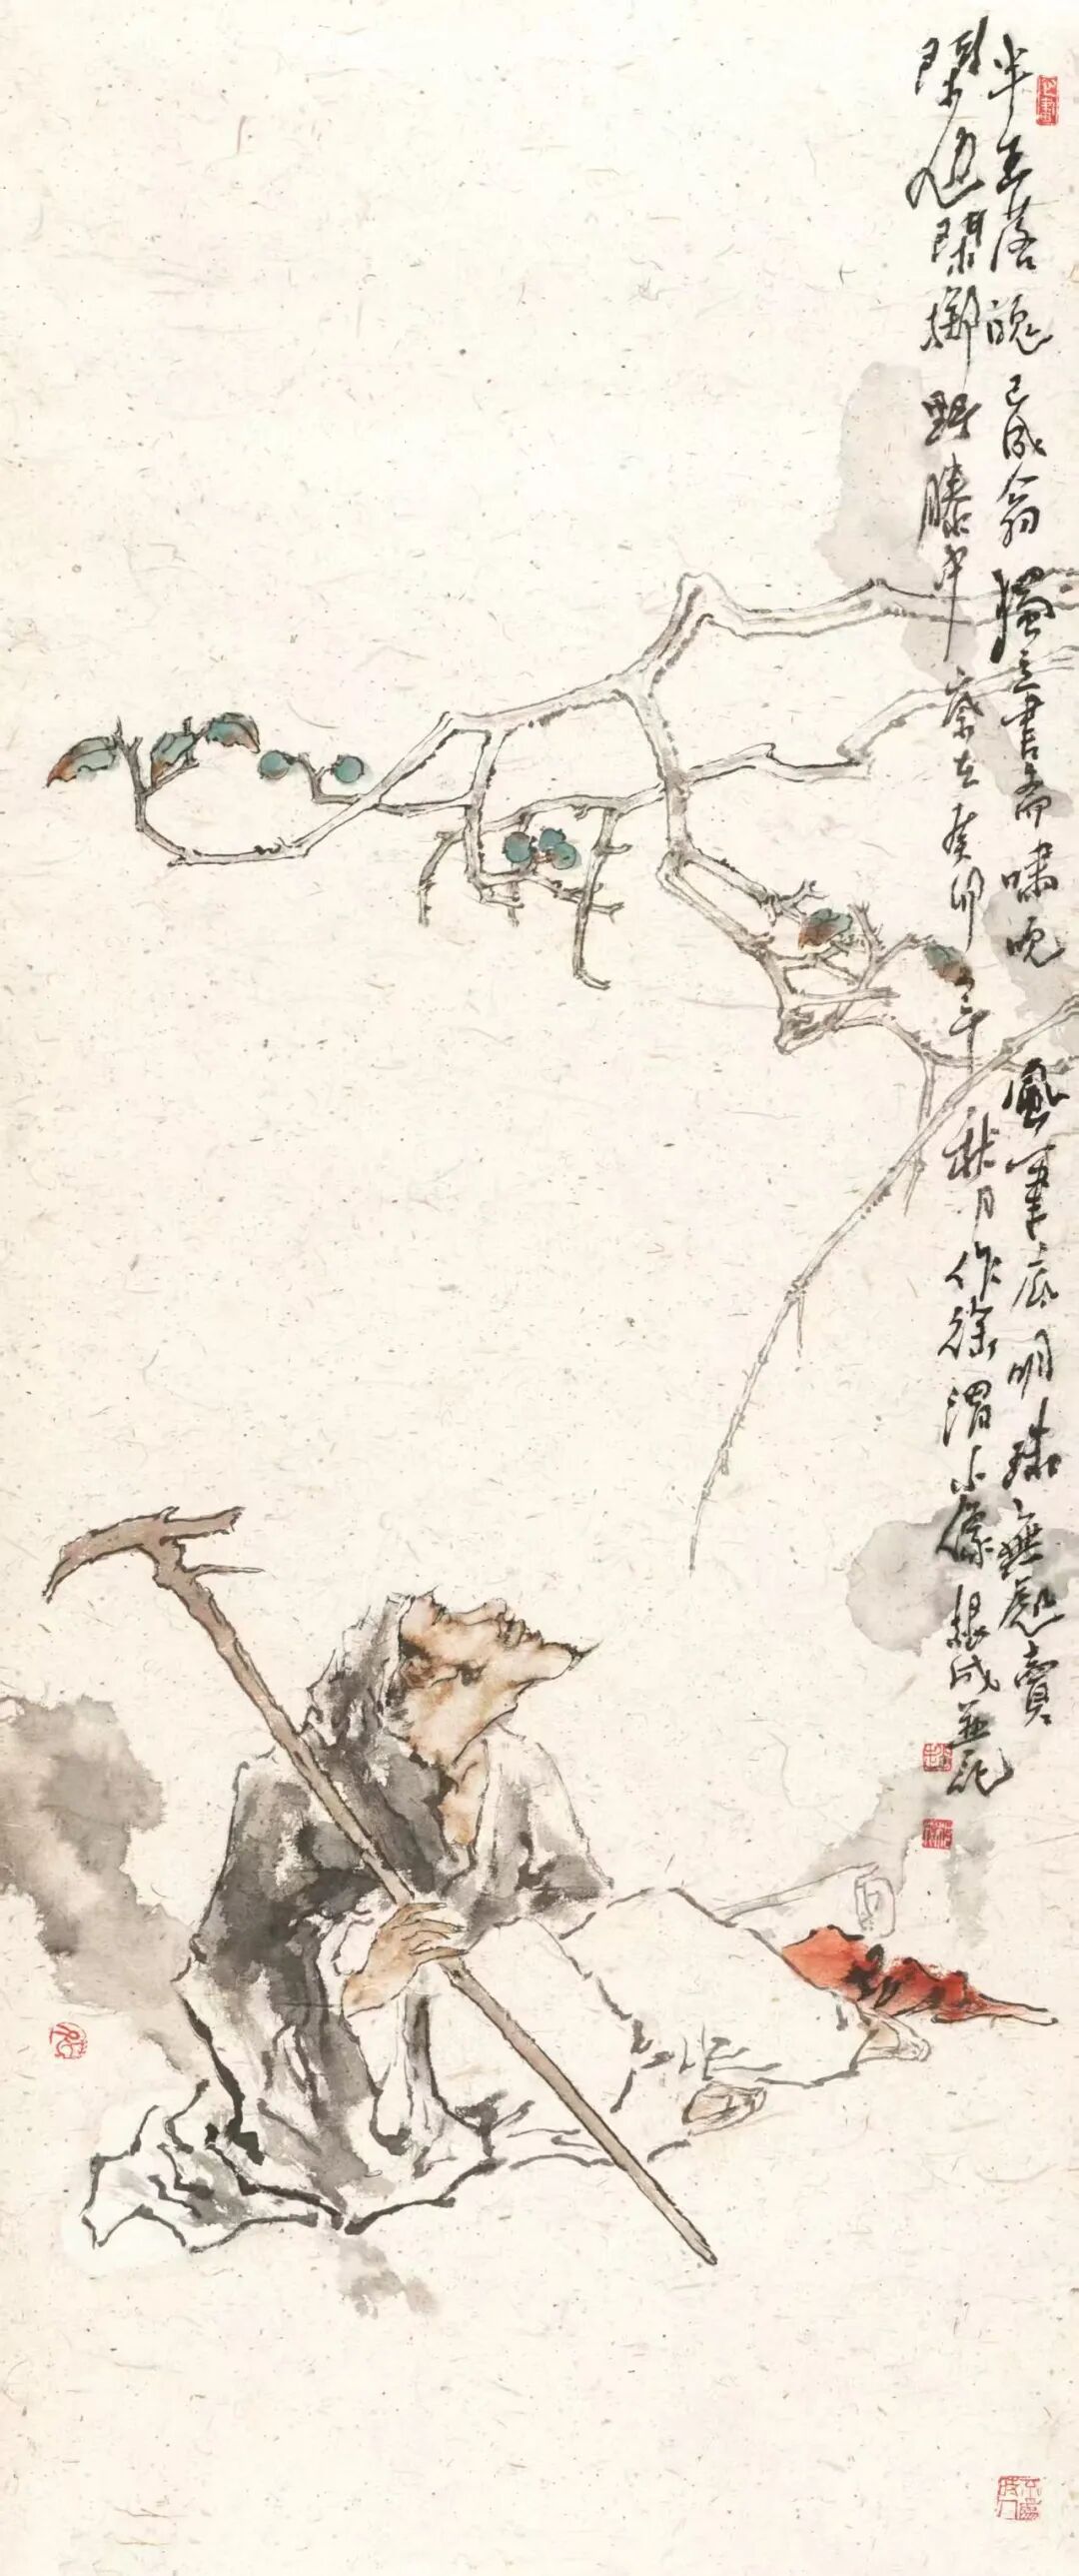 半生落魄已成翁獨立書齋嘯晚風筆底明珠無處賣
閑拋閑擲野藤中歲在癸卯年秋月作徐渭小像根成並記